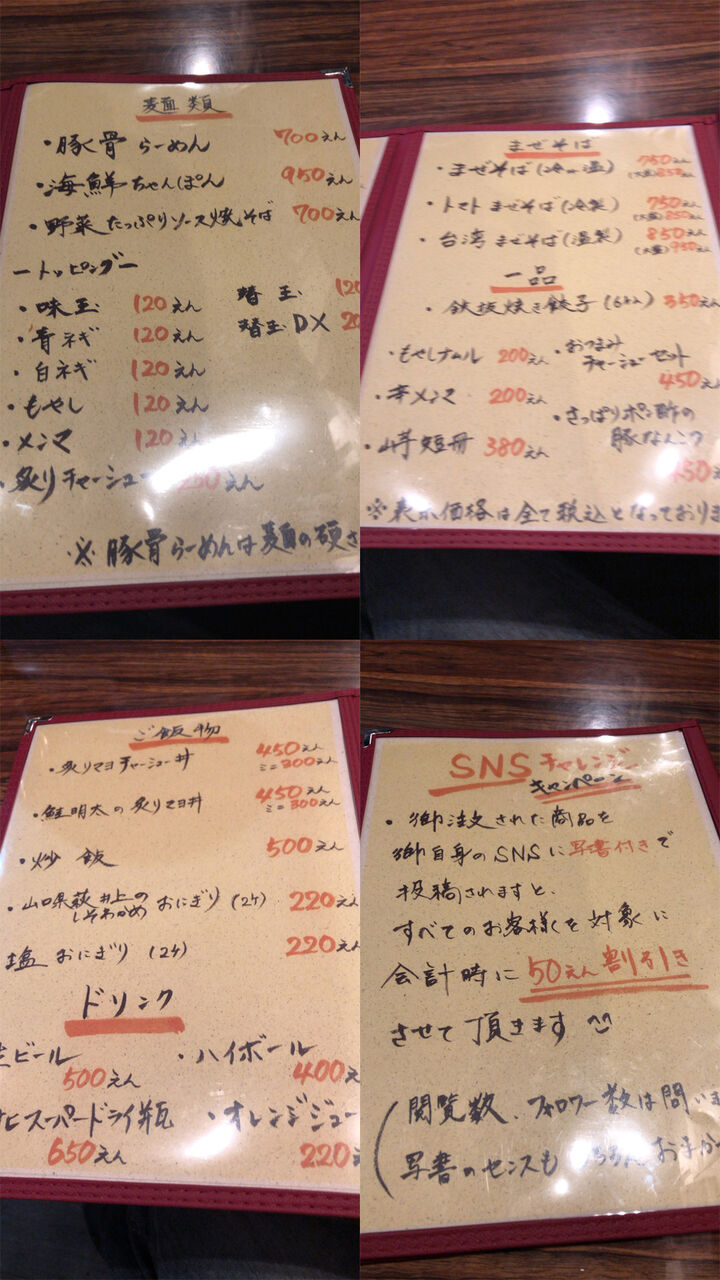 麺類
・豚骨らーめん 700えん
・海鮮ちゃんぽん 950えん
・野菜たっぷりソース焼そば 700えん
ートッピングー
・味玉 120えん
・青ネギ 120えん
・白ネギ 120えん
・もやし 120えん
・メンマ 120えん
・炙りチャーシュー えん
替玉 120
替玉DX 20
※豚骨らーめんは麺の硬さ
まぜそば
・まぜそば(冷or温) 750えん
(大盛)850えん
・トマトまぜそば(冷製) 750えん
(大盛)850えん
・台湾まぜそば(温製) 850えん
(大盛)950えん
一品
・鉄板焼き餃子(6ケ入) 350えん
・もやしナムル 200えん
・辛メンマ 200えん
・山芋短冊 380えん
・おつまみ
チャーシューセット
450えん
・さっぱりポン酢の
豚なんこつ
450え
※表示価格は全て税込となっておりま
ご飯物
・炙りマヨチャーシュー丼 450えん
ミニ300えん
・鮭明太の炙りマヨ丼 450えん
ミニ300えん
・炒飯 500えん
・山口県萩井上の
しそわかめ おにぎり(2ケ) 220えん
塩おにぎり(2ケ) 220えん
ドリンク
生ビール
500えん
・ハイボール
400え
ヒスーパードライ瓶
650えん
・オレンジジュー
220え
SNSチャレンジ
キャンペーン
・御注文された商品を
御自身のSNSに写書付きで
投稿されますと、
すべてのお客様を対象に
会計時に50えん割引き
させて頂きます
(閲覧数、フォロワー数は問いま
写書のセンスも